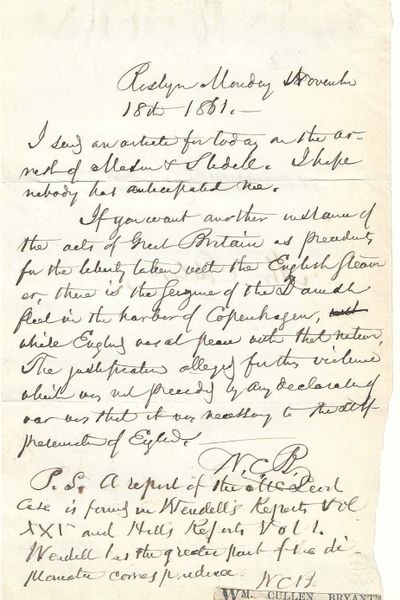 Roslyn Monday November
18th 1861.—
I send an article for today on the ar-
rest of Mason & Slidell. I hope
nobody has anticipated me.
If you want another instance of
the acts of Great Britain as precedents
for the liberty taken with the English steam
er, there is the seizure of the Danish
fleet in the harbor of Copenhagen,
while England was at peace with that nation.
The justification alleged for this violence
which was not preceded by any declaration of
war was that it was necessary to the self-
preservation of England.
W.C.B.
P.S. A report of the McLeod
case is found in Wendell's Reports Vol
XXV and Hills Reports Vol 1.
Wendell has the greater part of the di-
plomatic correspondence. WCB
WM. CULLEN BRYANT'S